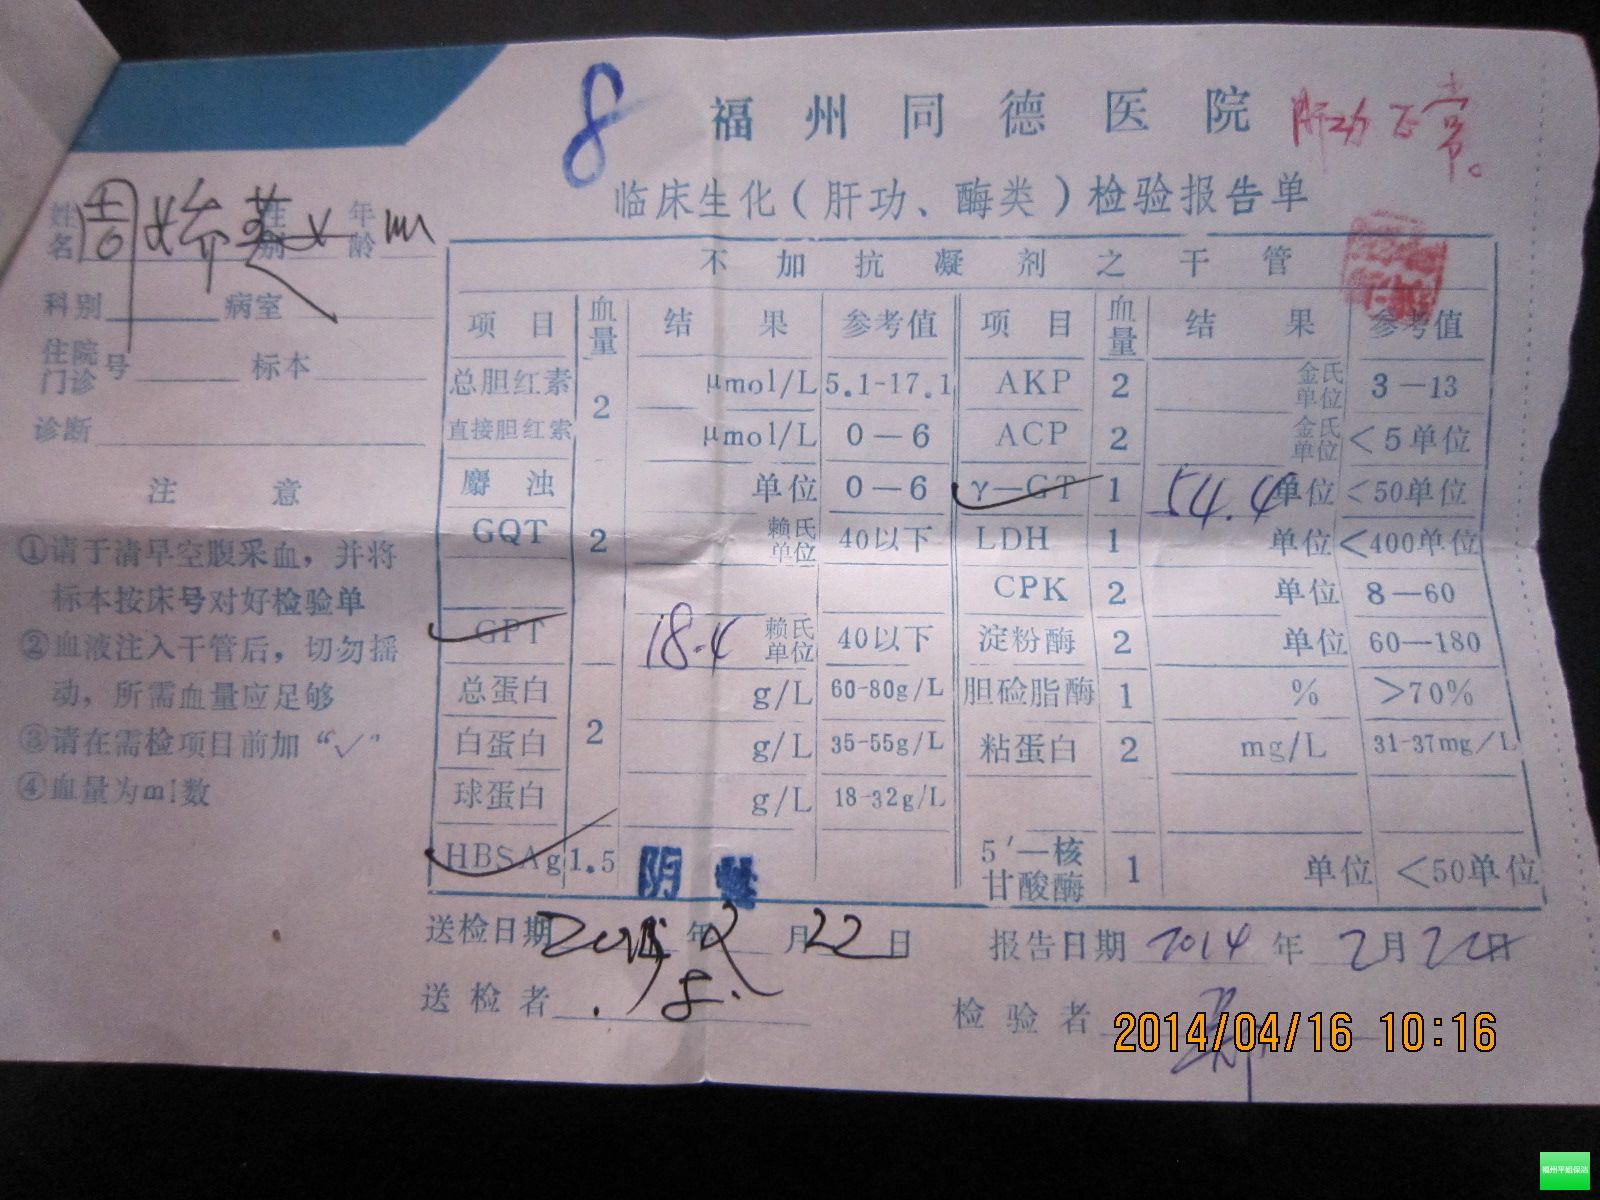 8 福州同德医院 肝功正常。
临床生化(肝功、酶类)检验报告单
姓名 周 性别 女 年龄
科别 病室
住院门诊号 标本
诊断
注意
①请于清早空腹采血，并将
标本按床号对好检验单
②血液注入干管后，切勿摇
动，所需血量应足够
③请在需检项目前加“√”
④血量为ml数
不加抗凝剂之干管
项目 血量 结果 参考值 项目 血量 结果 参考值
总胆红素 2 μmol/L 5.1-17.1 AKP 2 金氏单位 3—13
直接胆红素 μmol/L 0—6 ACP 2 金氏单位 <5单位
麝浊 单位 0—6 γ—GT 1 54.4 单位 <50单位
GQT 2 赖氏单位 40以下 LDH 1 单位 <400单位
CPK 2 单位 8—60
GPT 18.4 赖氏单位 40以下 淀粉酶 2 单位 60—180
总蛋白 2 g/L 60-80g/L 胆硷脂酶 1 % >70%
白蛋白 g/L 35-55g/L 粘蛋白 2 mg/L 31-37mg/L
球蛋白 g/L 18-32g/L
HBSAg 1.5 阴性 5′—核甘酸酶 1 单位 <50单位
送检日期 年2月22日 报告日期 2014年2月22日
送检者 检验者
2014/04/16 10:16
福州平姐保洁